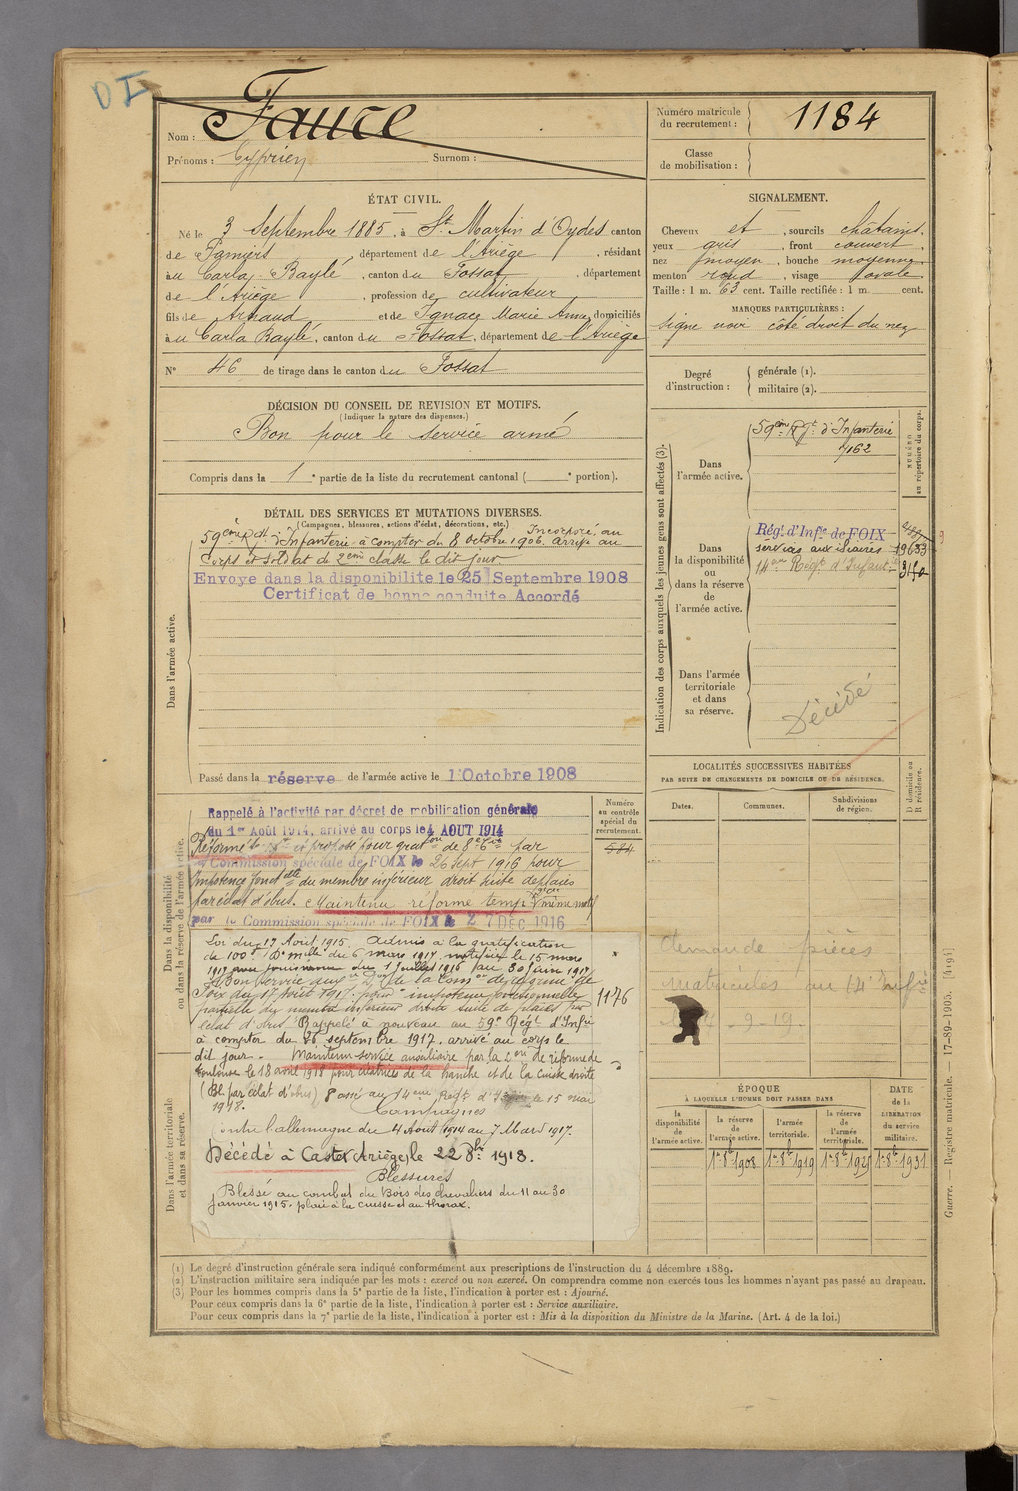 D I
Nom : Faure
Prénoms : Cyprien Surnom :
Numéro matricule
du recrutement : 1184
Classe
de mobilisation :
ÉTAT CIVIL.
Né le 3 Septembre 1885, à St Martin d'Oydes canton
de Pamiers, département de l'Ariège, résidant
au Carla Baylé, canton du Fossat, département
de l'Ariège, profession de cultivateur
fils de Arnaud et de Ignace Marie Anne, domiciliés
au Carla Baylé, canton du Fossat, département de l'Ariège
N° 46 de tirage dans le canton du Fossat
SIGNALEMENT.
Cheveux et, sourcils châtains.
yeux gris, front couvert,
nez moyen, bouche moyenne,
menton rond, visage ovale.
Taille : 1 m. 63 cent. Taille rectifiée : 1 m. cent.
MARQUES PARTICULIÈRES :
signe noir côté droit du nez
Degré
d'instruction :
générale (1).
militaire (2).
DÉCISION DU CONSEIL DE REVISION ET MOTIFS.
(Indiquer la nature des dispenses.)
Bon pour le service armé
Compris dans la 1 e partie de la liste du recrutement cantonal ( e portion).
DÉTAIL DES SERVICES ET MUTATIONS DIVERSES.
(Campagnes, blessures, actions d'éclat, décorations, etc.)
Dans l'armée active.
Incorporé au
59ème Rgt d'Infanterie à compter du 8 octobre 1906. arrivé au
Corps et soldat de 2ème classe le dit jour.
Envoyé dans la disponibilité le 25 Septembre 1908
Certificat de bonne conduite Accordé
Passé dans la réserve de l'armée active le 1 Octobre 1908
Indication des corps auxquels les jeunes gens sont affectés (3).
NUMÉRO
au répertoire du corps.
Dans
l'armée active.
59ème Rgt d'Infanterie
7162
Dans
la disponibilité
ou
dans la réserve
de
l'armée active.
Régt d'Infie de FOIX
services auxiliaires 19633
14me Régt d'Infantie 3150
Dans l'armée
territoriale
et dans
sa réserve.
Décédé
LOCALITÉS SUCCESSIVES HABITÉES
PAR SUITE DE CHANGEMENTS DE DOMICILE OU DE RÉSIDENCE.
Dates.
Communes.
Subdivisions
de région.
D domicile ou
R résidence.
Demande pièces
matricules au 14e Infie
4-9-19.
Dans la disponibilité
ou dans la réserve de l'armée active.
Dans l'armée territoriale
et dans sa réserve.
Numéro
au contrôle
spécial du
recrutement.
584
1176
Rappelé à l'activité par décret de mobilisation générale
du 1er Août 1914, arrivé au corps le 4 AOUT 1914
Réformé n° et proposé pour graton de 8e cie par
Commission spéciale de FOIX le 26 Sept 1916 pour
impotence fonctelle du membre inférieur droit suite de plaies
par éclat d'obus. Maintenu réformé temp même motif
par la Commission spéciale de FOIX le 27 DEC 1916
Loi du 17 Avril 1915. Admis à la gratification
de 100f Don Mlle du 6 mars 1917 notifiée le 15 mars
1917 avec jouissance du 1 Juillet 1916 au 30 Juin 1917.
Bon service aux de la Comon de réforme de
Foix du 17 Août 1917. pour impotence fonctionnelle
partielle du membre inférieur droit suite de plaies par
éclat d'obus. Rappelé à nouveau au 59e Régt d'Infie
à compter du 26 septembre 1917. arrivé au corps le
dit jour. Maintenu service auxiliaire par la Con de réforme de
Toulouse le 18 avril 1918 pour cicatrices de la hanche et de la cuisse droite
(Bl. par éclat d'obus) Passé au 14ème Régt d'Infie le 15 mai
1918.
Campagnes
Contre l'allemagne du 4 Août 1914 au 7 Mars 1917.
Décédé à Castex Ariège, le 22 8bre 1918.
Blessures
Blessé au combat du Bois des chevaliers du 11 au 30
Janvier 1915. plaie à la cuisse et au thorax.
ÉPOQUE
À LAQUELLE L'HOMME DOIT PASSER DANS
la
disponibilité
de
l'armée active.
la réserve
de
l'armée active.
l'armée
territoriale.
la réserve
de
l'armée
territoriale.
DATE
de la
LIBÉRATION
du service
militaire.
1er 8b 1908 1er 8b 1919 1er 8b 1925 1er 8b 1931
(1) Le degré d'instruction générale sera indiqué conformément aux prescriptions de l'instruction du 4 décembre 1889.
(2) L'instruction militaire sera indiquée par les mots : exercé ou non exercé. On comprendra comme non exercés tous les hommes n'ayant pas passé au drapeau.
(3) Pour les hommes compris dans la 5e partie de la liste, l'indication à porter est : Ajourné.
Pour ceux compris dans la 6e partie de la liste, l'indication à porter est : Service auxiliaire.
Pour ceux compris dans la 7e partie de la liste, l'indication à porter est : Mis à la disposition du Ministre de la Marine. (Art. 4 de la loi.)
Guerre. — Registre matricule. — 17-89-1905. [4191]